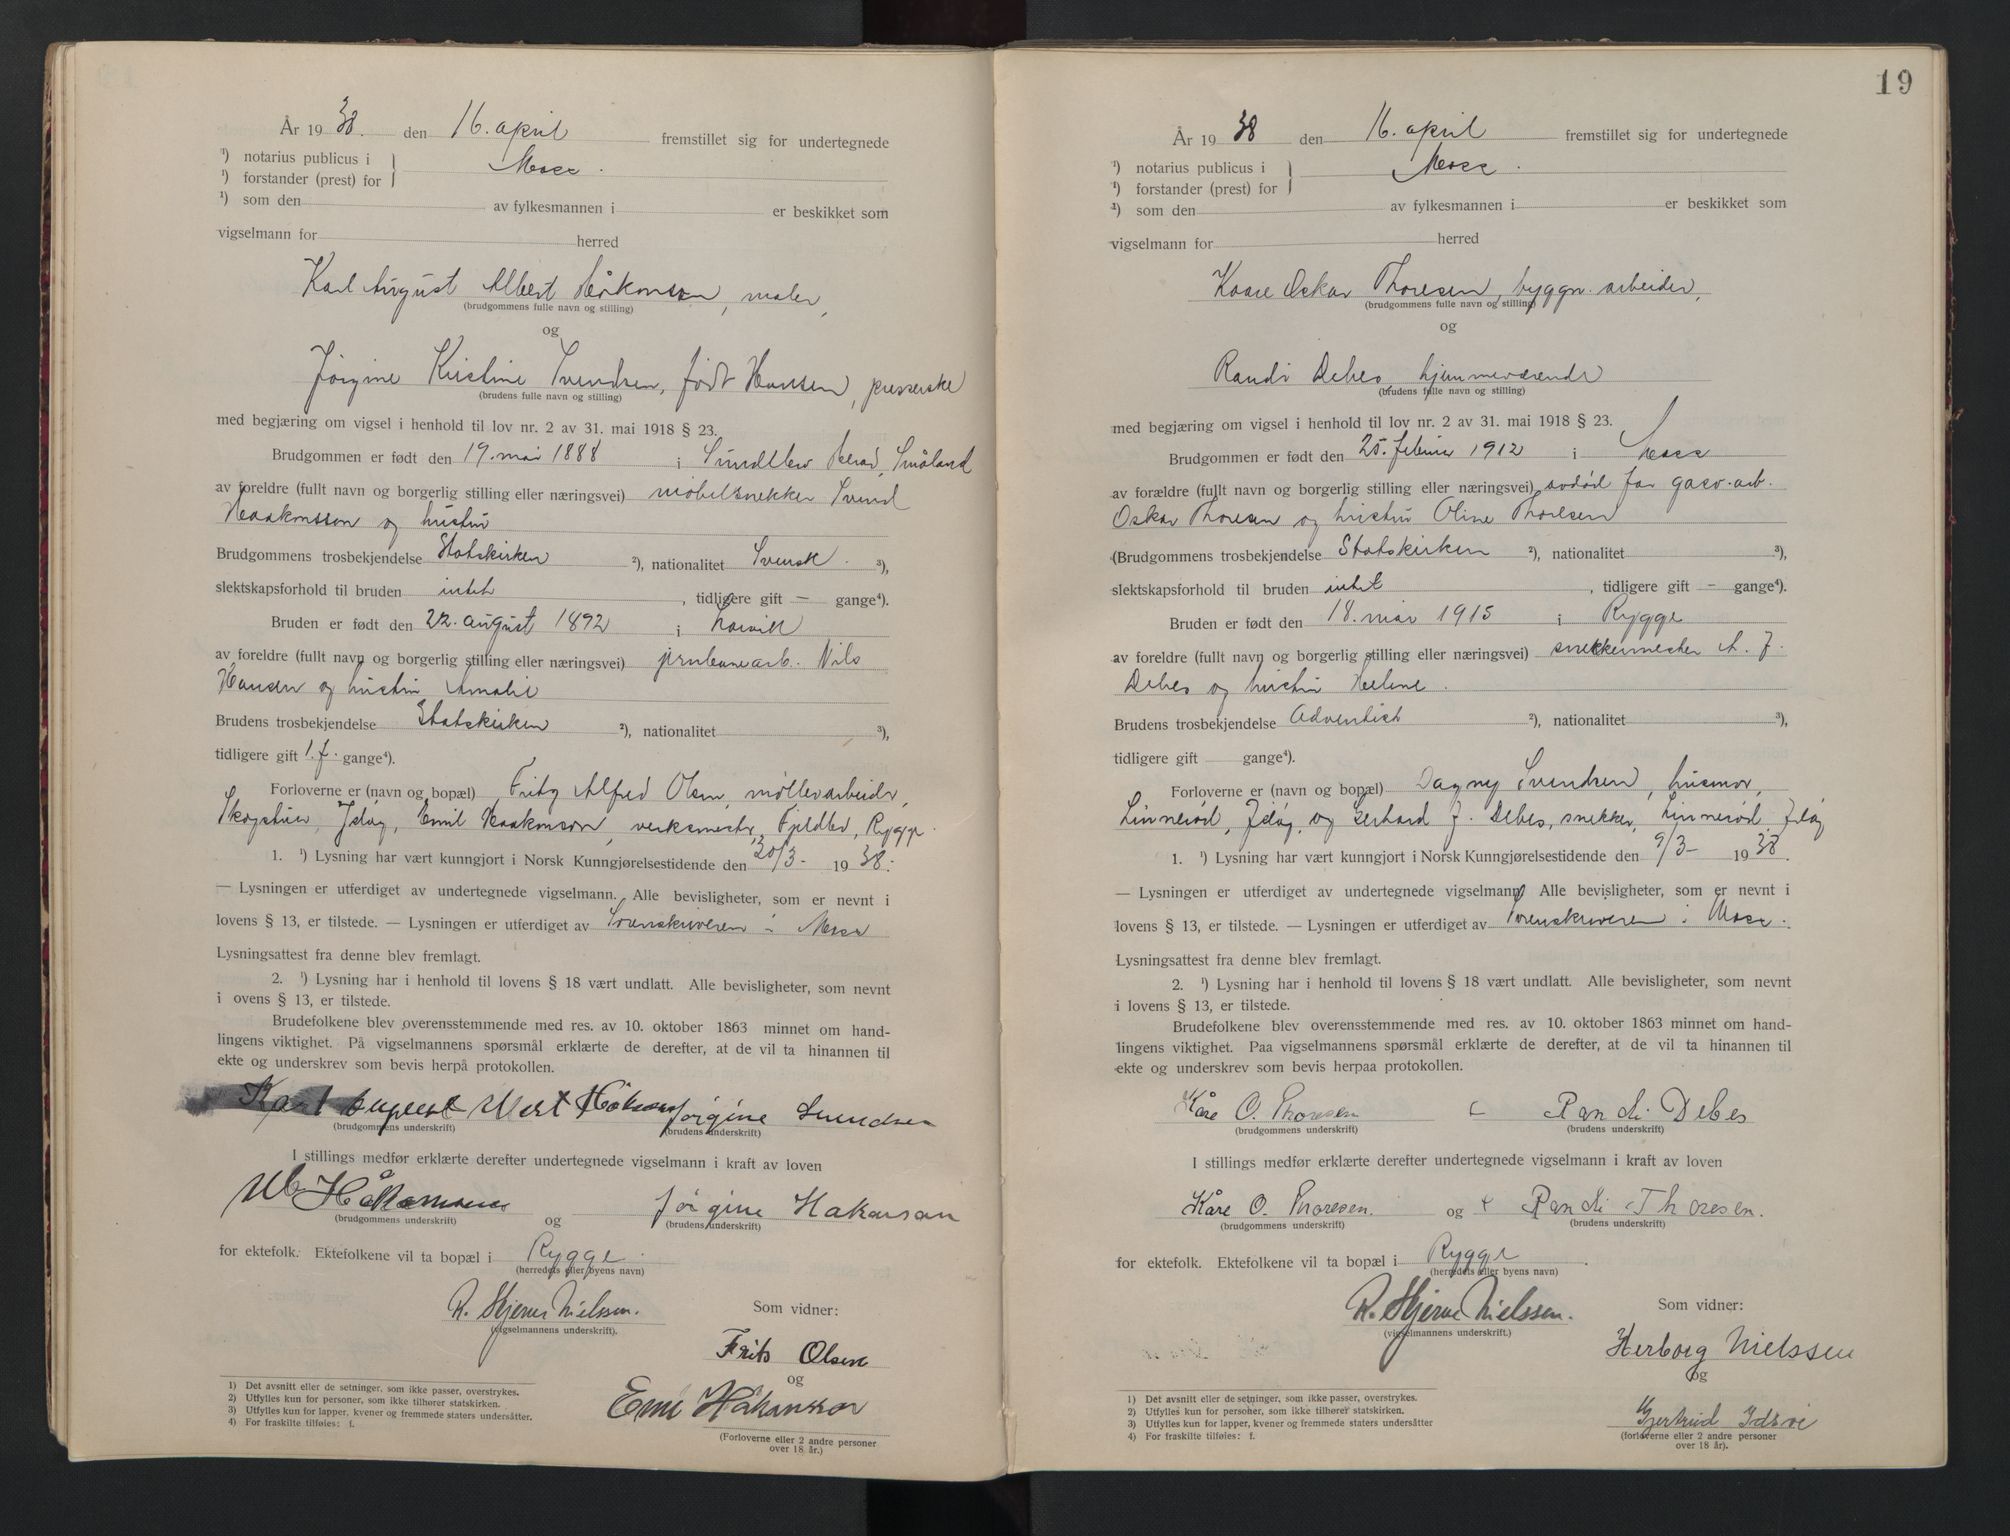 År 1938. den 16. april fremstillet sig for undertegnede
¹) notarius publicus i
¹) forstander (prest) for } Moss.
¹) som den av fylkesmannen i er beskikket som
vigselmann for herred
Karl August Albert Håkonson, maler,
(brudgommens fulle navn og stilling)
og
Jørgine Kristine Svendsen, født Hansen, presserske
(brudens fulle navn og stilling)
med begjæring om vigsel i henhold til lov nr. 2 av 31. mai 1918 § 23.
Brudgommen er født den 19. mai 1888 i Småland
av foreldre (fullt navn og borgerlig stilling eller næringsvei) møbelsnekker Svend
Haakonsson og hustru
Brudgommens trosbekjendelse Statskirken ²), nationalitet Svensk. ³),
slektskapsforhold til bruden intet, tidligere gift — gange⁴).
Bruden er født den 22. august 1892 i Larvik
av foreldre (fullt navn og borgerlig stilling eller næringsvei) jernbanearb. Nils
Hansen og hustru Amalie
Brudens trosbekjendelse Statskirken ²), nationalitet ³),
tidligere gift 1.f. gange⁴).
Forloverne er (navn og bopæl) Fritz Alfred Olsen, møllearbeider,
Jeløy, Emil Haakonson, verksmester, Rygge.
1. ¹) Lysning har vært kunngjort i Norsk Kunngjørelsestidende den 30/3- 1938:
— Lysningen er utferdiget av undertegnede vigselmann. Alle bevisligheter, som er nevnt i
lovens § 13, er tilstede. — Lysningen er utferdiget av Sorenskriveren i Moss
Lysningsattest fra denne blev fremlagt.
2. ¹) Lysning har i henhold til lovens § 18 vært undlatt. Alle bevisligheter, som nevnt
i ovens § 13, er tilstede.
Brudefolkene blev overensstemmende med res. av 10. oktober 1863 minnet om hand-
lingens viktighet. På vigselmannens spørsmål erklærte de derefter, at de vil ta hinannen til
ekte og underskrev som bevis herpå protokollen.
Karl August Albert Håkonson Jørgine Svendsen
(brudgommens underskrift) (brudens underskrift)
I stillings medfør erklærte derefter undertegnede vigselmann i kraft av loven
Håkanson Jørgine Hakanson
(brudgommens underskrift) og (brudens underskrift)
for ektefolk. Ektefolkene vil ta bopæl i Rygge.
(herredets eller byens navn)
R. Hjerne Nielssen. Som vidner:
(vigselmannens underskrift).
Frits Olsen
og
Emil Håkansson
(Forloverne eller 2 andre personer
over 18 år.)
1) Det avsnitt eller de setninger, som ikke passer, overstrykes.
2) Utfylles kun for personer, som ikke tilhører statskirken.
3) Utfylles kun for lapper, kvener og fremmede staters undersåtter.
4) For fraskilte tilføies: f.
19
År 1938 den 16. april fremstillet sig for undertegnede
¹) notarius publicus i
¹) forstander (prest) for } Moss.
¹) som den av fylkesmannen i er beskikket som
vigselmann for herred
Kaare Oskar Thoresen, byggn. arbeider,
(brudgommens fulle navn og stilling)
og
Randi Debes, hjemmeværende
(brudens fulle navn og stilling)
med begjæring om vigsel i henhold til lov nr. 2 av 31. mai 1918 § 23.
Brudgommen er født den 25. februar 1912 i Moss
av forældre (fullt navn og borgerlig stilling eller næringsvei) avdød far gasv.arb.
Oskar Thoresen og hustru Oline Thoresen
(Brudgommens trosbekjendelse Statskirken ²), nationalitet ³),
slektskapsforhold til bruden intet, tidligere gift — gange⁴).
Bruden er født den 18. mai 1915 i Rygge
av foreldre (fullt navn og borgerlig stilling eller næringsvei) snekkermester A. J.
Debes og hustru Helene.
Brudens trosbekjendelse Adventist ²), nationalitet ³),
tidligere gift — gange⁴).
Forloverne er (navn og bopæl) Dagny Svendsen, husmor,
Linnerød, Jeløy, og Gerhard J. Debes, snekker, Linnerød, Jeløy
1. ¹) Lysning har vært kunngjort i Norsk Kunngjørelsestidende den 9/3- 1938.
— Lysningen er utferdiget av undertegnede vigselmann. Alle bevisligheter, som er nevnt i
lovens § 13, er tilstede. — Lysningen er utferdiget av Sorenskriveren i Moss.
Lysningsattest fra denne blev fremlagt.
2. ¹) Lysning har i henhold til lovens § 18 vært undlatt. Alle bevisligheter, som nevnt
i lovens § 13, er tilstede.
Brudefolkene blev overensstemmende med res. av 10. oktober 1863 minnet om hand-
lingens viktighet. Paa vigselmannens spørsmål erklærte de derefter, at de vil ta hinannen til
ekte og underskrev som bevis herpaa protokollen.
Kåre O. Thoresen Randi Debes
(brudgommens underskrift) (brudens underskrift)
I stillings medfør erklærte derefter undertegnede vigselmann i kraft av loven
Kåre O. Thoresen. og Randi Thoresen.
(brudgommens underskrift) (brudens underskrift)
for ektefolk. Ektefolkene vil ta bopæl i Rygge.
(herredets eller byens navn)
R. Hjerne Nielssen. Som vidner:
(vigselmannens underskrift.)
Herborg Nielssen
og
Gjertrud Idsøe
(forloverne eller 2 andre personer
over 18 år).
1) Det avsnitt eller de setninger, som ikke passer, overstrykes.
2) Utfylles kun for personer, som ikke tilhører statskirken.
3) Utfylles kun for lapper, kvener og fremmede staters undersåtter
4) For fraskilte tilføies: f.